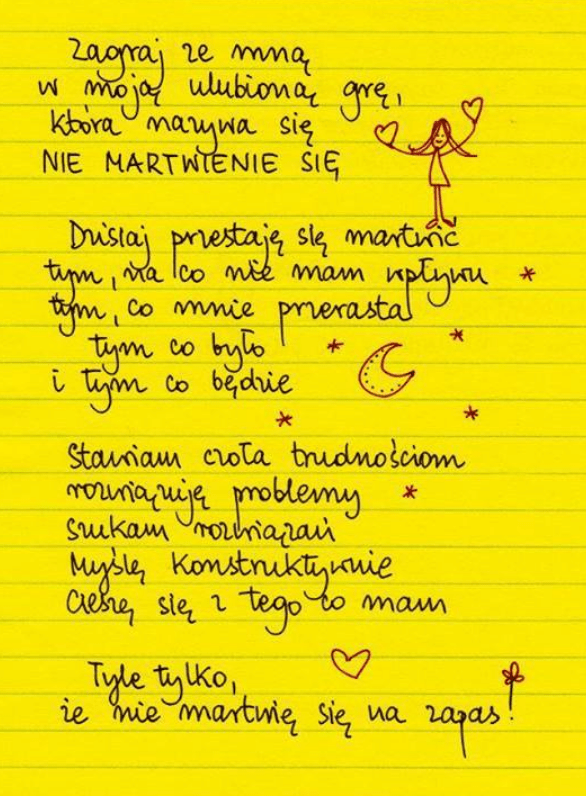 Zagraj ze mną
w moją ulubioną grę,
która nazywa się
NIE MARTWIENIE SIĘ
Dzisiaj przestaję się martwić
tym, na co nie mam wpływu
tym, co mnie przerasta
tym co było
i tym co będzie
Stawiam czoła trudnościom
rozwiązuję problemy
szukam rozwiązań
Myślę konstruktywnie
Cieszę się z tego co mam
Tyle tylko,
że nie martwię się na zapas!